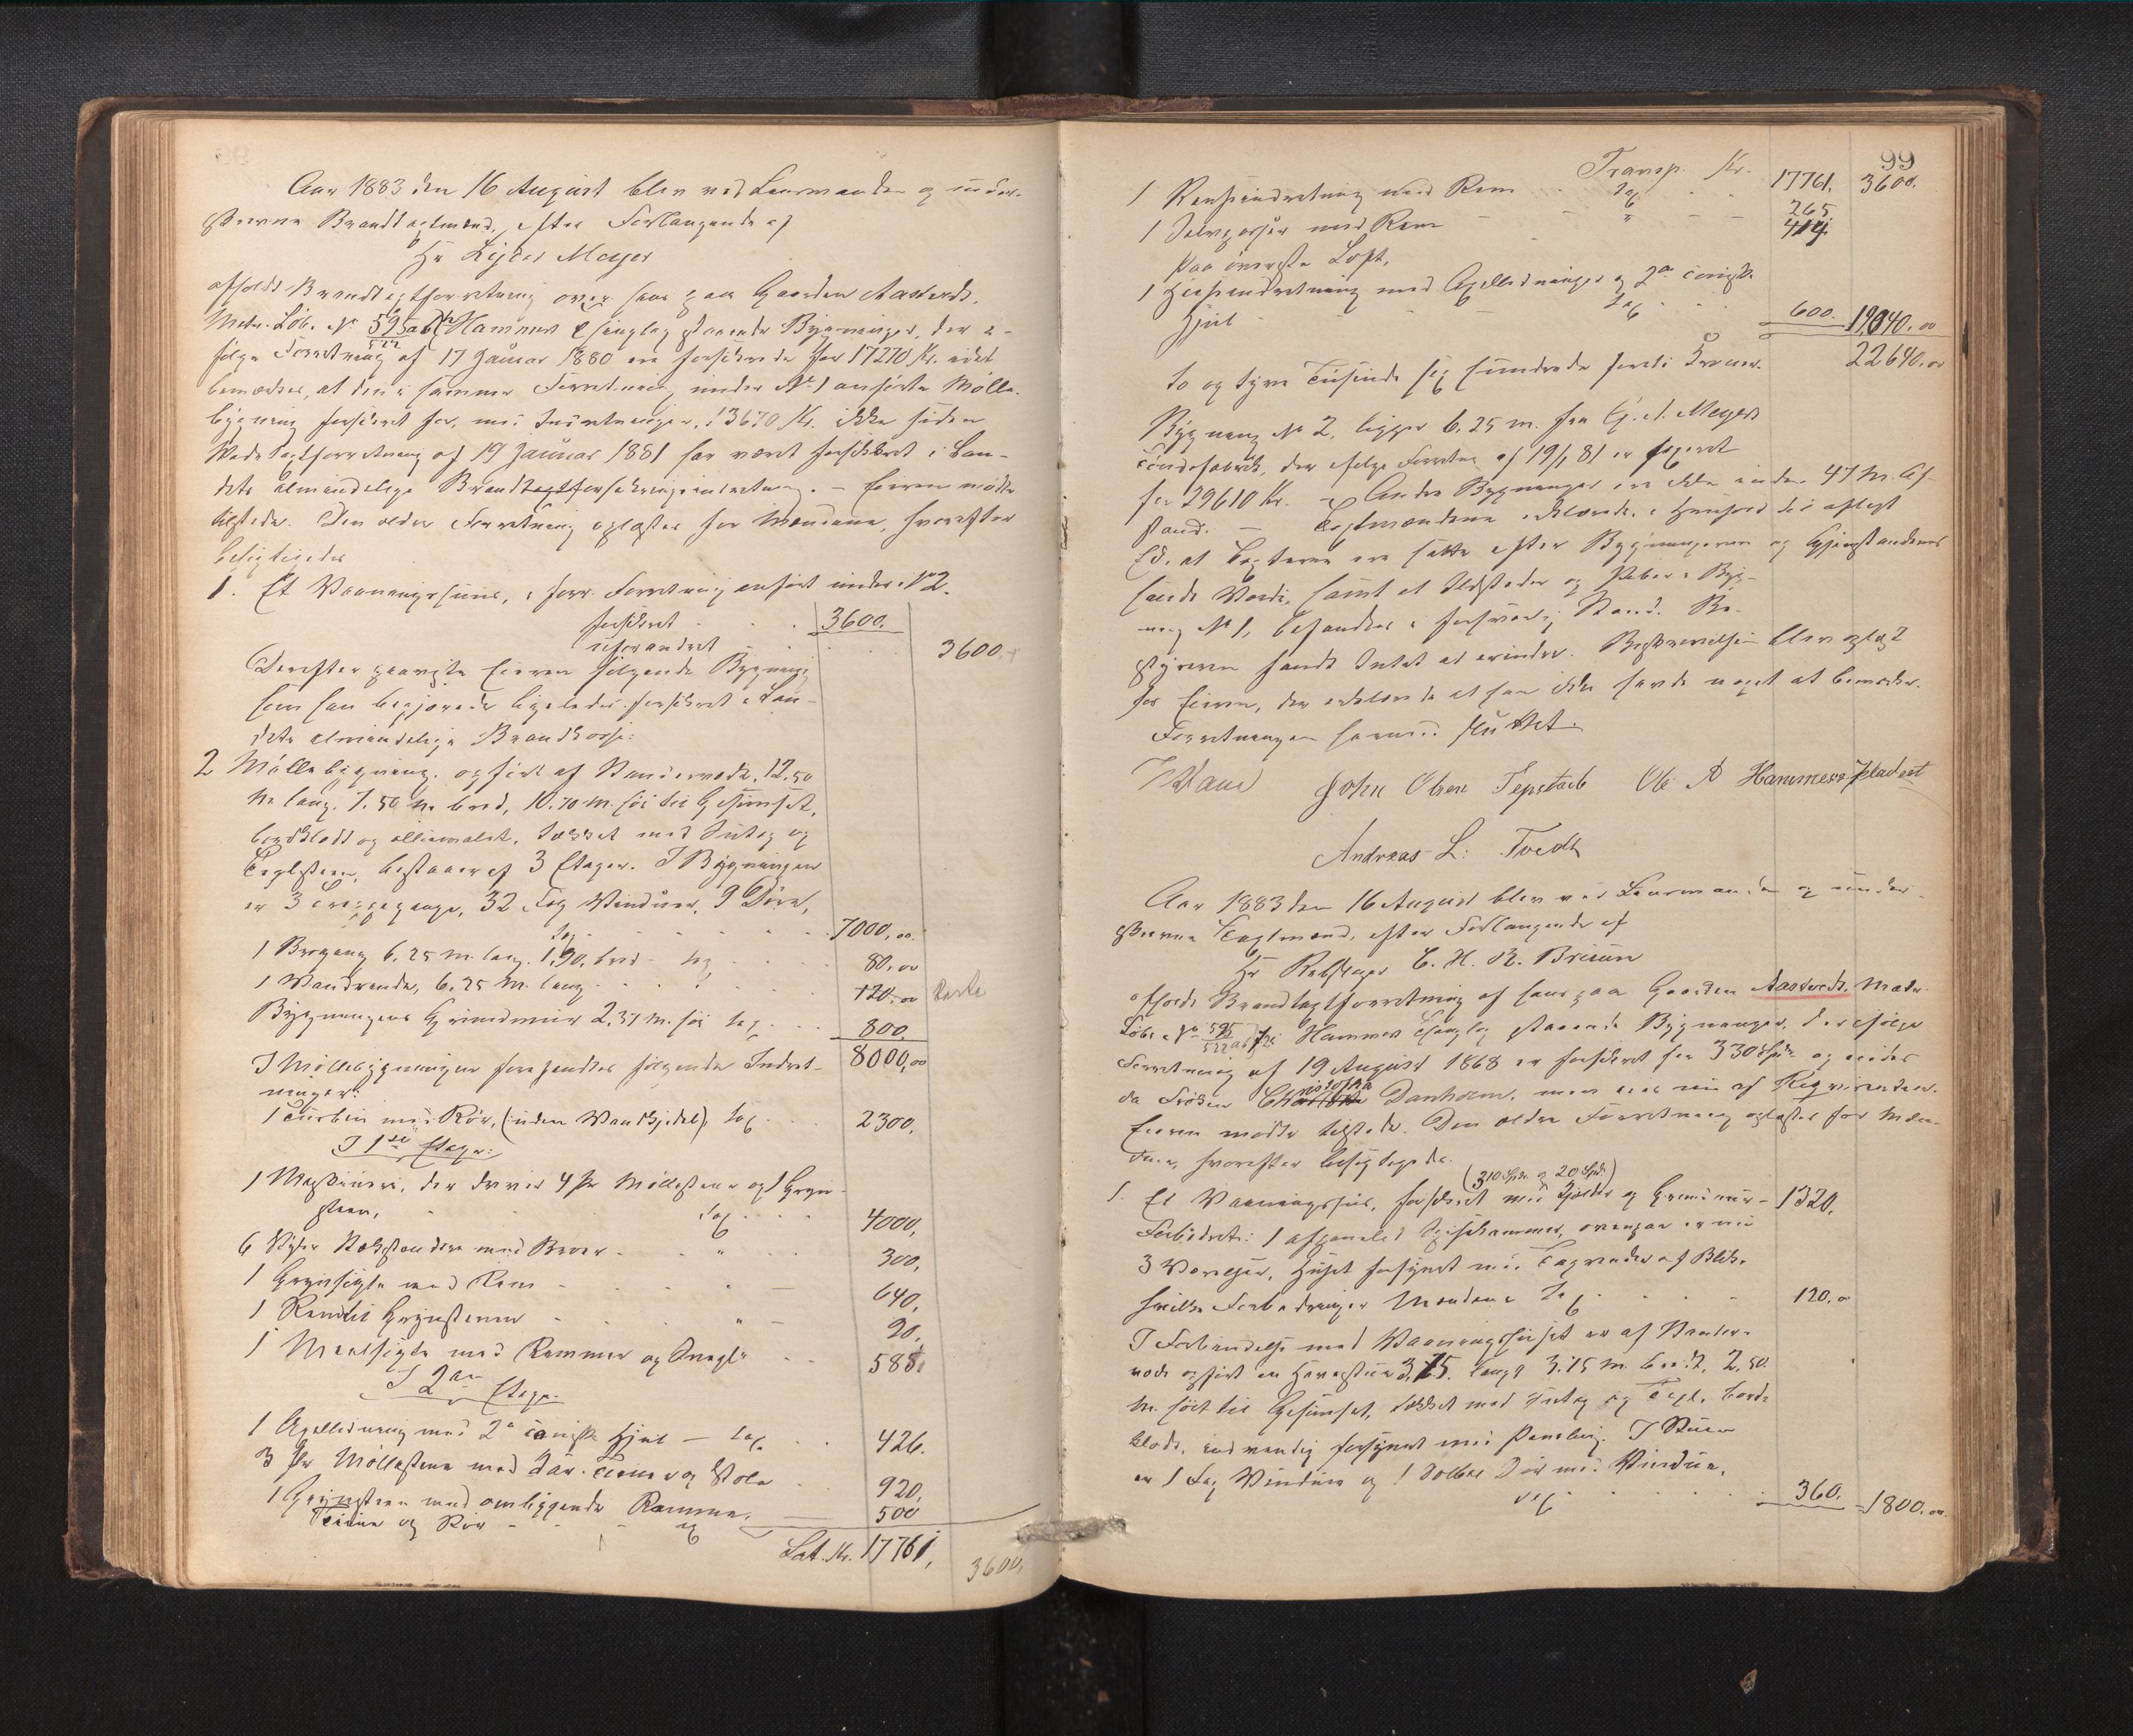 Aar 1883 den 16 August blev ved Lensmanden og under-
skrevne Brandtagtmænd, efter Forlangende af
Hr Meyer
afholdt Brandtagtforretning over hans paa Gaarden Aastvedt,
Matr. Løb. No 595ab Hammers Thinglag staaende Bygninger, der i-
522
følge Forretning af 17 Januar 1880 ere forsikrede for 17270 Kr. idet
bemærkes, at den i samme Forretning under No 1 anførte Mølle-
bygning forsikret for, med Indretninger, 13670 Kr. ikke siden
Skadetagtforretning af 19 Januar 1881 har været forsikret i Lan-
dets almindelige Brandforsikringsindretning. — Eieren mødte
tilstede. Den ældre Forretning oplæstes for Mændene, hvorefter
besigtigedes
1. Et Vaaningshuus, i forr. Forretning anført under No 2.
forsikret . . . 3600.
uforandret . . . 3600.
Derefter paaviste Eieren følgende Bygning
som han begjærede ligeledes forsikret i Lan-
dets almindelige Brandkasse:
2 Møllebygning, opført af Standerværk, 12,50
m lang, 7.50 m bred, 10.70 m. høi til Gesimset,
bordklædt og olliemalet, tækket med Sutag og
Taglsteen, bestaaer af 3 Etager. I Bygningen
er 3 Trappegange, 32 Fag Vinduer, 9 Døre,
Tax . . . 7000,00
1 Brogang 6.25 m. lang. 1,90, bred tax . . . 80,00
1 Vandrende, 6.25 m. lang . . . 120,00
Bygningens Grundmuur 2,37 m. høi tax . . . 800.
I Møllebygningen forefandtes følgende Indret- 8000,00
ninger:
1 Turbin med Rør, (uden Vandkjedel), tax . . . 2300,
I 1ste Etage:
1 Maskineri, der driver 4 Par Møllestene og 1 Gryn-
steen, Tax . . . 4000,
6 Stolpestandere med Broer . . . 300,
1 Grynsigte med Rem . . . 640,
1 Rem til Grynstenen . . . 20,
1 Meelsigte med Rammer og . . . 585,
I 2den Etage.
1 Axelledning med 2de coniske Hjul — tax . . . 426.
3 Par Møllestene med Kar, og Stole . . . 920,
1 Grynsteen med omliggende Ramme, 500
og Rør tax
Lat. Kr. 17761, 3600,
99
Transp. Kr. 17761. 3600.
1 Rensindretning med Rem . . Tax . . 265
1 med Rem — — " — 414.
Paa øverste Loft.
1 Heiseindretning med Axelledninger og 2de coniske
Hjul . . . Tax . . 600. 19040.00
22640.00
To og tyve Tusinde sex hundrede førti Kroner.
Bygning No 2, ligger 6.25 m. fra Meyers
Tøndefabrik, der ifølge Forretn. af 19/1 81 er taxeret
for 29610 Kr. — Andre Bygninger ere ikke inden 47 m. Af-
stand. — Tagtmændene erklærede, i Henhold til aflagt
Ed, at Tagterne ere satte efter Bygningernes og Gjenstandenes
sande Værdi, samt at Ildsteder og Piber i Byg-
ning No 1, befandtes i forsvarlig Stand. Be-
styreren fandt Intet at erindre. Beskrivelsen blev oplæst
for Eieren, der erklærede at han ikke havde noget at bemærke.
Forretningen hermed sluttet.
John Olsen Tepstad Ole A Hammerspladset
Andreas L: Tvedt
Aar 1883 den 16 August blev ved Lensmanden og under-
skrevne Tagtmænd, efter Forlangende af
Hr Rebslager C. H. R. Bruun
afholdt Brandtagtforretning af hans paa Gaarden Aastvedt, Matr.
Løbe No 595 ab Hammers Thinglag staaende Bygninger, der ifølge
522
Forretning af 19 August 1868 er forsikret for 330 Spd og eiedes
da Frøken Christopha Danholm, men eies nu af Reqvirenten.
Eieren mødte tilstede. Den ældre Forretning oplæstes for Mæn-
dene, hvorefter besigtigedes.
(310 Spd. og 20 Spd.)
1. Et Vaaningshus, forsikret med Kjælder og Grundmuur — 1320.
Forbedret: 1 afpanelet Spisekammer, ovenpaa er nu
3 Værelser, Huset forsynet med Tagrender af Blik,
hvilke Forbedringer Mændene Tax . . . 120.00
I Forbindelse med Vaaningshuset er af Stander-
værk opført en Havestue 3,75. lang 3.75 m. bred, 2,50
m. høit til Gesimset, tækket med Sutag og Tagl, bord-
klædt, indvendig forsynet med Paneling. I Stuen
er 1 Fag Vindue og 1 dobbel Dør med Vindue.
Tax . . . 360. 1800.00